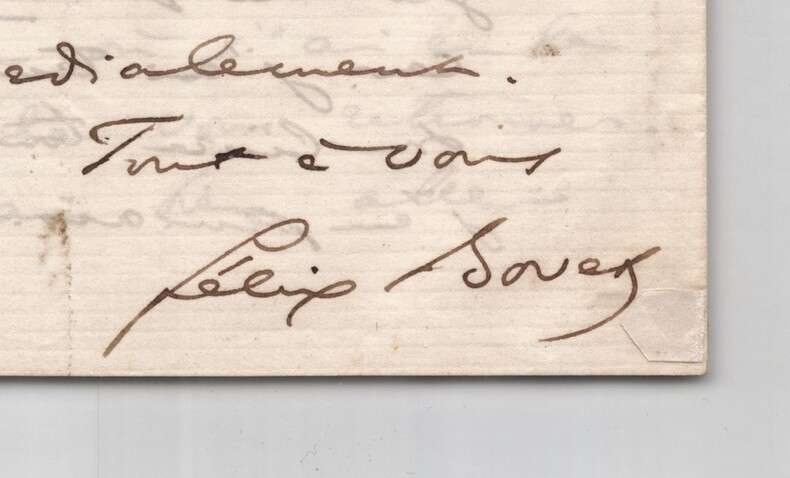 cordialement.
Tout à vous
Félix Bovet